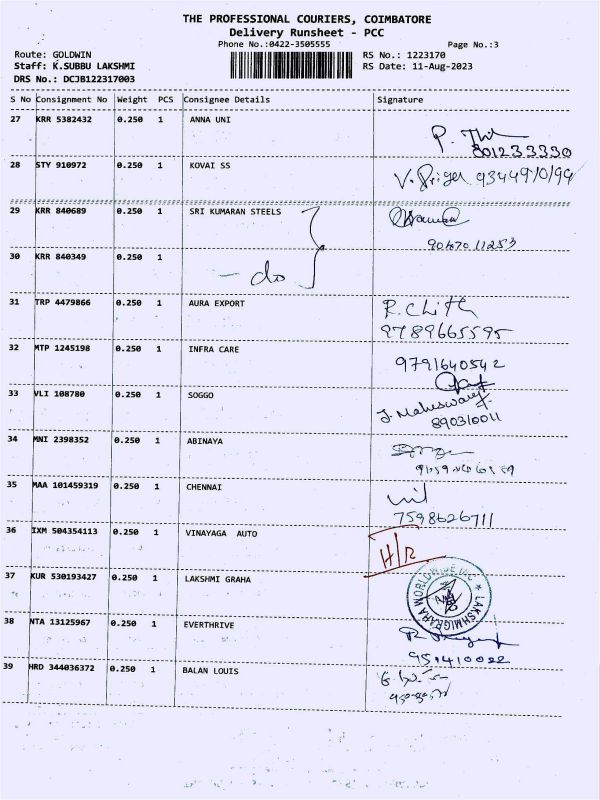 THE PROFESSIONAL COURIERS, COIMBATORE
Delivery Runsheet - PCC
Phone No.:0422-3505555
Page No.:3
Route: GOLDWIN
RS No.: 1223170
Staff: K.SUBBU LAKSHMI
RS Date: 11-Aug-2023
DRS No.: DCJB122317003
S No Consignment No Weight PCS Consignee Details Signature
27 KRR 5382432 0.250 1 ANNA UNI
801233330
28 STY 910972 0.250 1 KOVAI SS
29 KRR 840689 0.250 1 SRI KUMARAN STEELS
30 KRR 840349 0.250 1 - do
31 TRP 4479866 0.250 1 AURA EXPORT
9789665595
32 MTP 1245198 0.250 1 INFRA CARE 9791640542
33 VLI 108780 0.250 1 SOGGO J. Maheswary
890310011
34 MNI 2398352 0.250 1 ABINAYA
35 MAA 101459319 0.250 1 CHENNAI
7598626711
36 IXM 504354113 0.250 1 VINAYAGA AUTO H/R
37 KUR 530193427 0.250 1 LAKSHMI GRAHA
LAKSHMIGRAHA WORLDWIDE INC
38 NTA 13125967 0.250 1 EVERTHRIVE
951410022
39 HRD 344036372 0.250 1 BALAN LOUIS